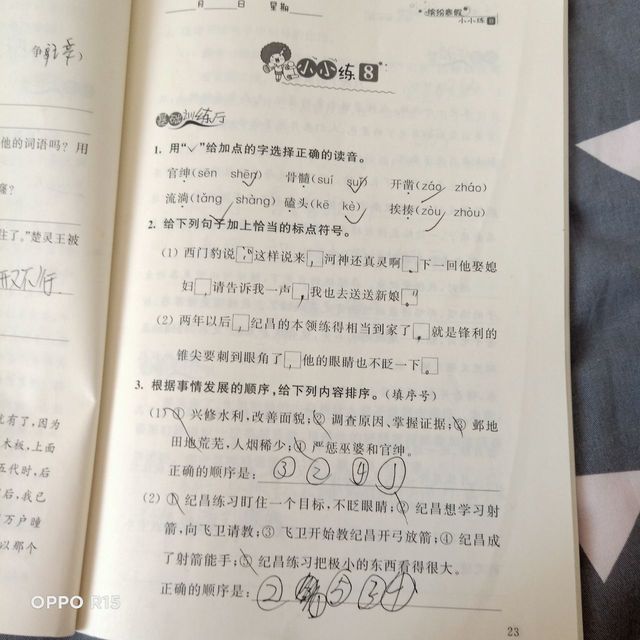 争驻辜）
他的词语吗？用
窿？
住了。”楚灵王被
又不行
就有了，因为
木板，上面
五代时，后
后，我已
万户瞳
以那个
月 日 星期
缤纷寒假
小小练 8
小小练 8
基础训练厅
1. 用“✓”给加点的字选择正确的读音。
官绅(sēn shēn) 骨髓(suí suǐ) 开凿(záo zháo)
流淌(tǎng shàng) 磕头(kē kè) 挨揍(zòu zhòu)
2. 给下列句子加上恰当的标点符号。
(1) 西门豹说：“这样说来，河神还真灵啊。下一回他娶媳
妇，请告诉我一声，我也去送送新娘。”
(2) 两年以后，纪昌的本领练得相当到家了，就是锋利的
锥尖要刺到眼角了，他的眼睛也不眨一下。
3. 根据事情发展的顺序，给下列内容排序。（填序号）
(1) ① 兴修水利，改善面貌；② 调查原因、掌握证据；③ 邺地
田地荒芜，人烟稀少；④ 严惩巫婆和官绅。
正确的顺序是：③ ② ④ ①
(2) ① 纪昌练习盯住一个目标，不眨眼睛；② 纪昌想学习射
箭，向飞卫请教；③ 飞卫开始教纪昌开弓放箭；④ 纪昌成
了射箭能手；⑤ 纪昌练习把极小的东西看得很大。
正确的顺序是：② ⑤ ③ ④
23
OPPO R15